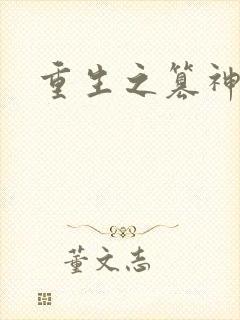 重生之篡神
董文志